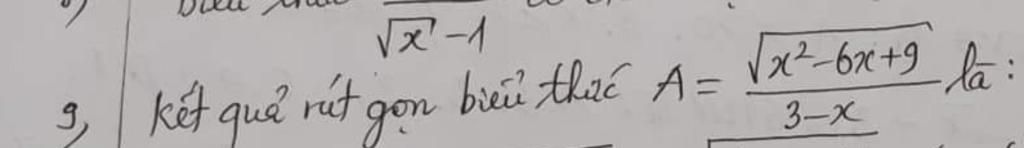 √x - 1
9, Kết quả rút gọn biểu thức A = √(x² - 6x + 9) / (3 - x) là :